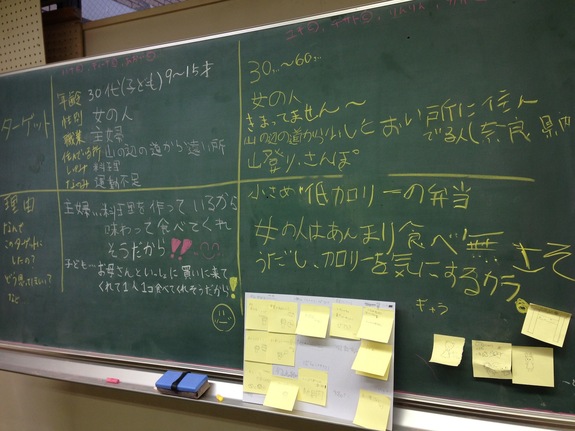 ターゲット
年齢 30代(子ども)9〜15才
性別 女の人
職業 主婦
住んでいる所 山の辺の道から遠い所
しゅみ 料理
なやみ 運動不足
30…〜60…
女の人
きまってません〜
山の辺の道から少しとおい所に住んでる人(奈良県内
山登り、さんぽ
理由
なんで
このターゲットに
したの?
どう思ってほしい?
など
主婦…料理を作っているから
味わって食べてくれ
そうだから!!
子ども…お母さんといっしょに買いに来て
くれて1人1コ食べてくれそうだから!
小さめ 低カロリーの弁当
女の人はあんまり食べ無さそ
うだし、カロリーを気にするカラ。
ギャラ